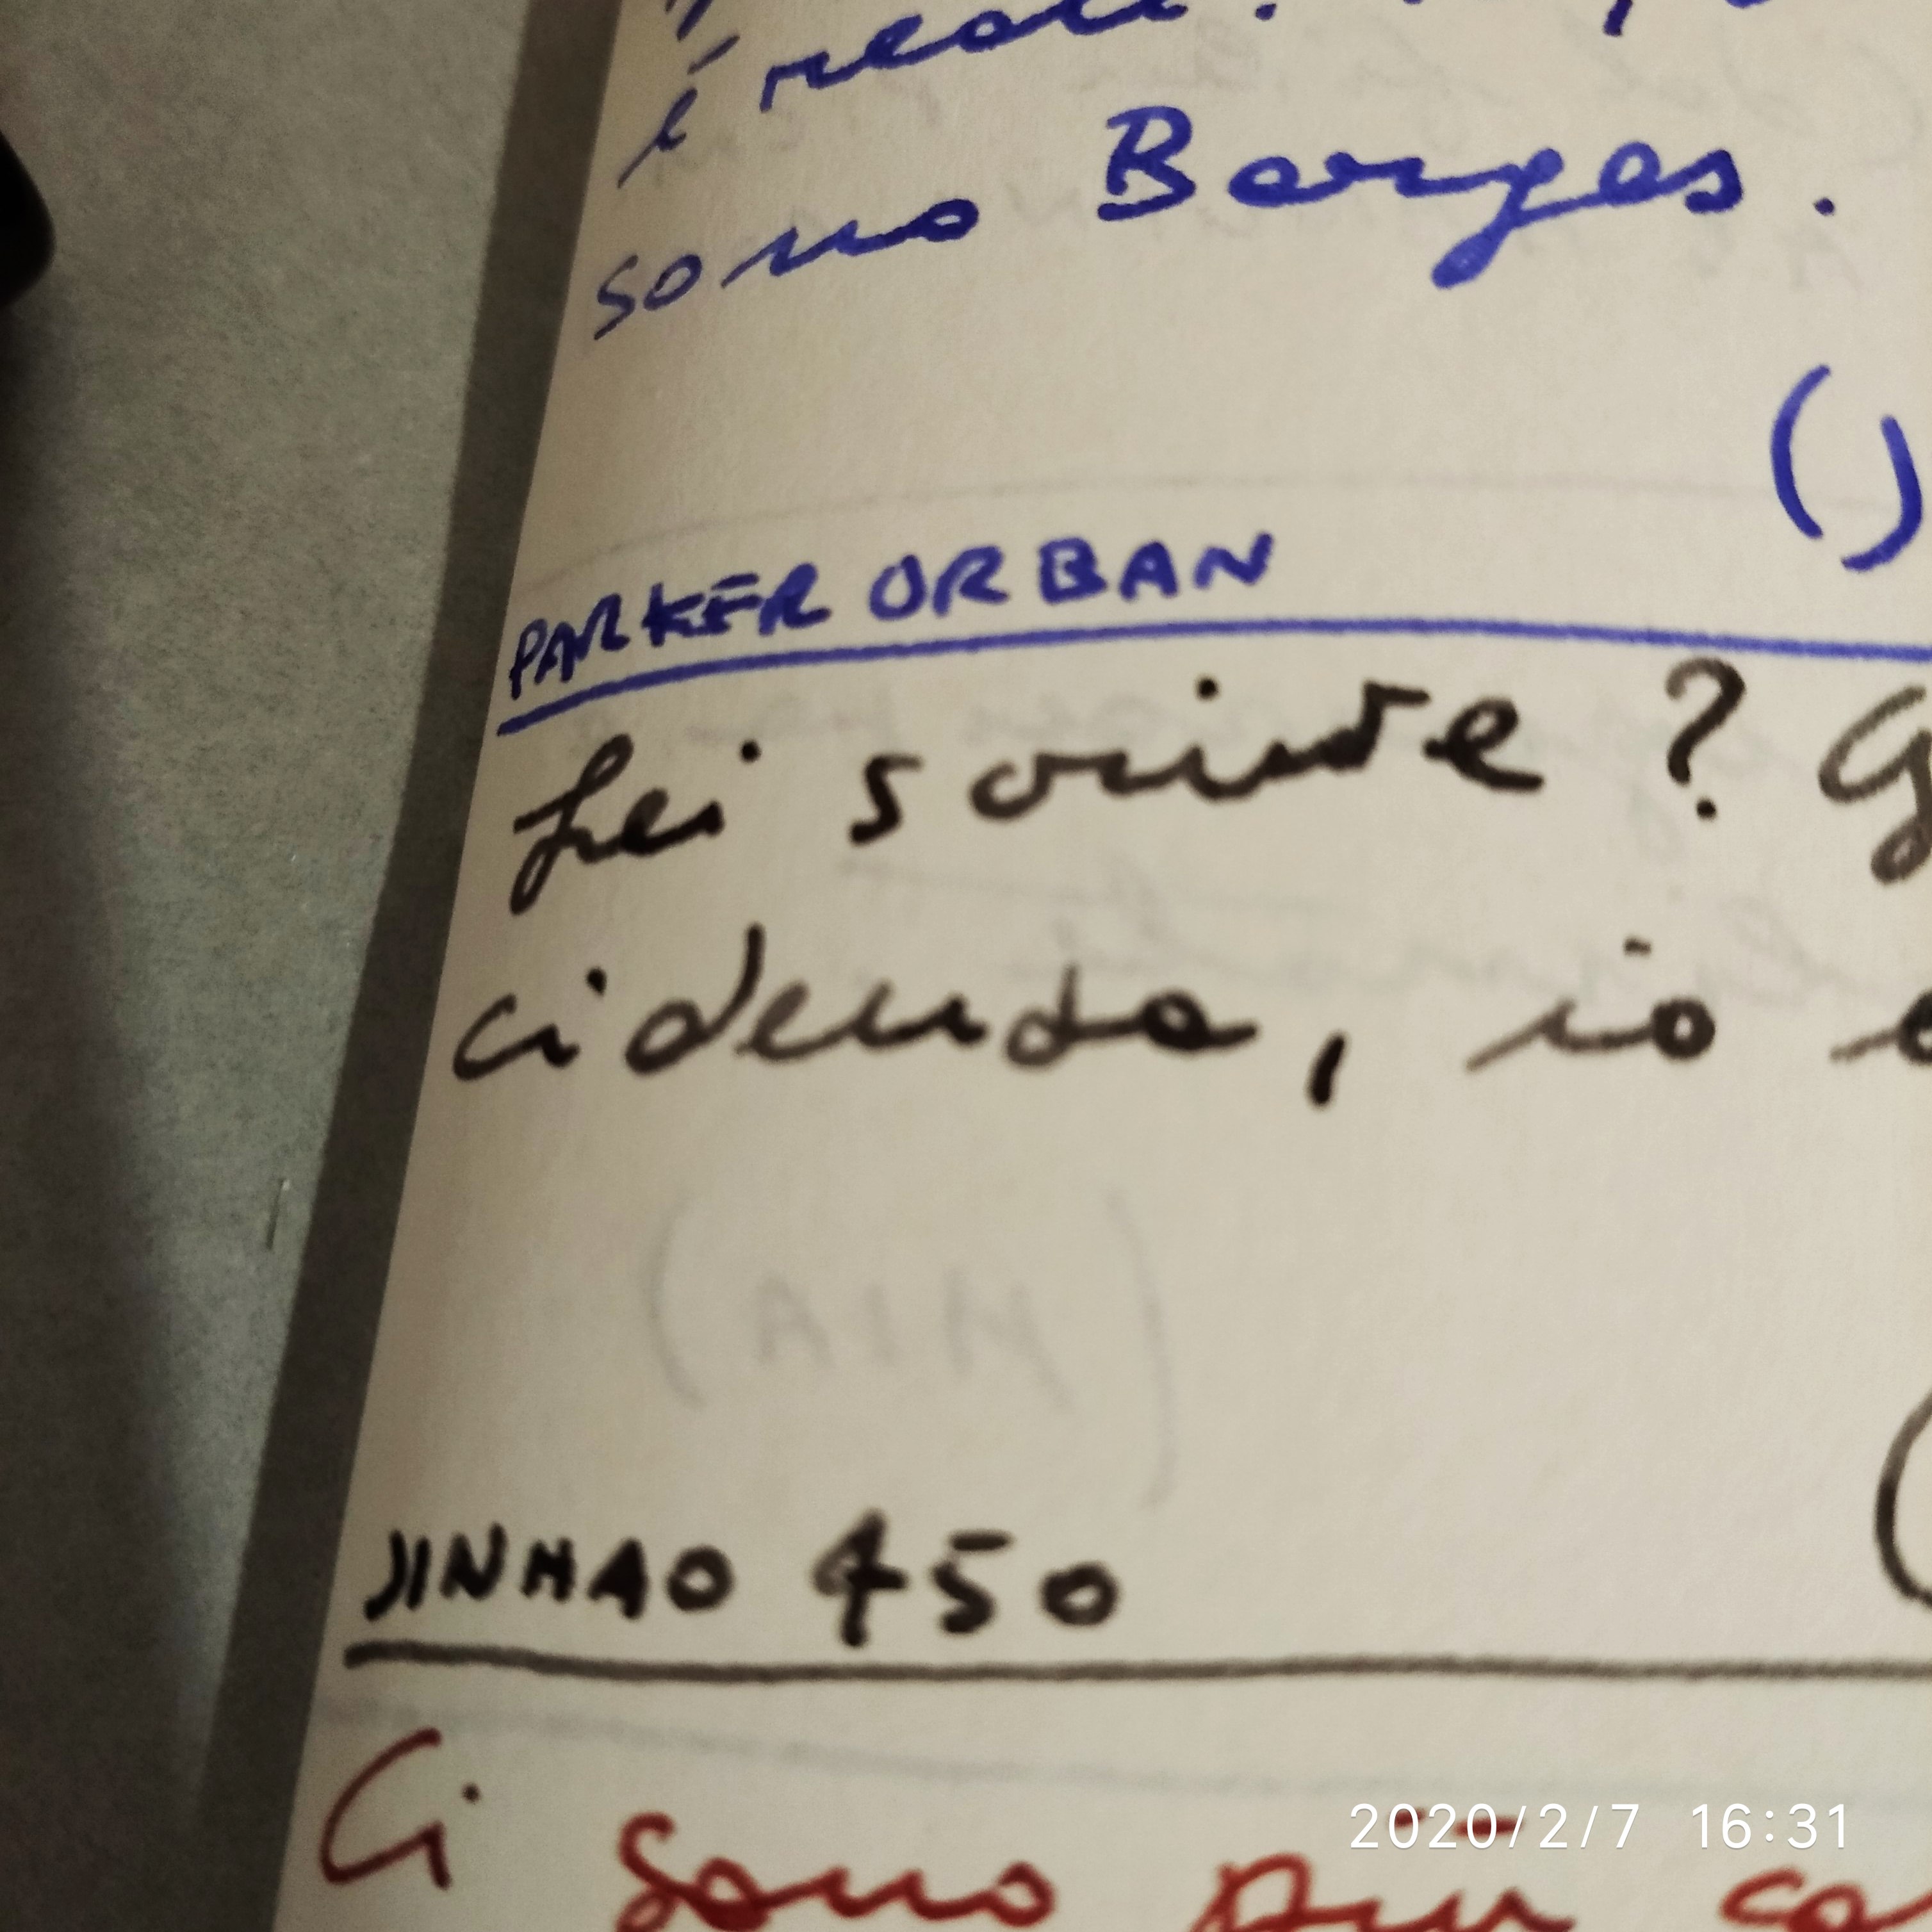 è reale.
sono Borges.
()
PARKER ORBAN
Lei scrive? G
cidenda, io
JINHAO 450
Ci sono più co
2020/2/7 16:31